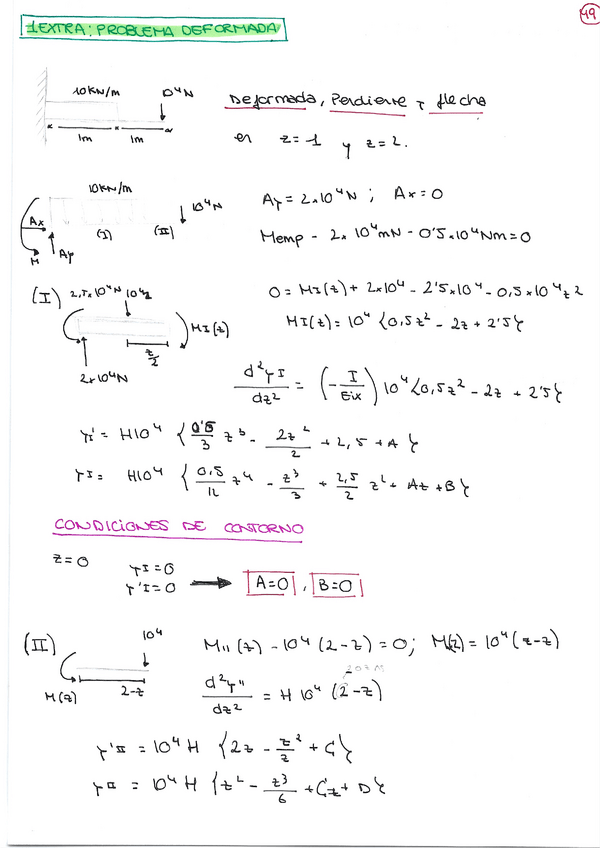 49
1 EXTRA: PROBLEMA DEFORMADA
10KN/m 10⁴N
1m 1m
Deformada, Pendiente y flecha
en z=1 y z=2.
10KN/m
10⁴N
Ax
M Ay (I) (II)
Ay = 2x10⁴N ; Ax=0
Memp - 2x 10⁴mN - 0'5x10⁴Nm=0
(I) 2,5x10⁴N 10⁴z
MI(z)
z/2
2x10⁴N
0= MI(z) + 2x10⁴ - 2'5x10⁴ - 0,5x10⁴z²
MI(z) = 10⁴ {0,5z² - 2z + 2'5}
d²yI/dz² = (-I/EIx) 10⁴{0,5z² - 2z + 2'5}
yI' = H10⁴ {0'5/3 z³ - 2z²/2 + 2,5 + A}
yI = H10⁴ {0,5/12 z⁴ - z³/3 + 2,5/2 z² + Az + B}
CONDICIONES DE CONTORNO
z=0 yI=0
y'I=0 → A=0 , B=0
(II) 10⁴
M(z) 2-z
MII(z) - 10⁴(2-z) = 0; M(z) = 10⁴(2-z)
d²y"/dz² = H 10⁴ (2-z)
y'II = 10⁴ H {2z - z²/2 + C}
yII = 10⁴ H {z² - z³/6 + Cz + D}